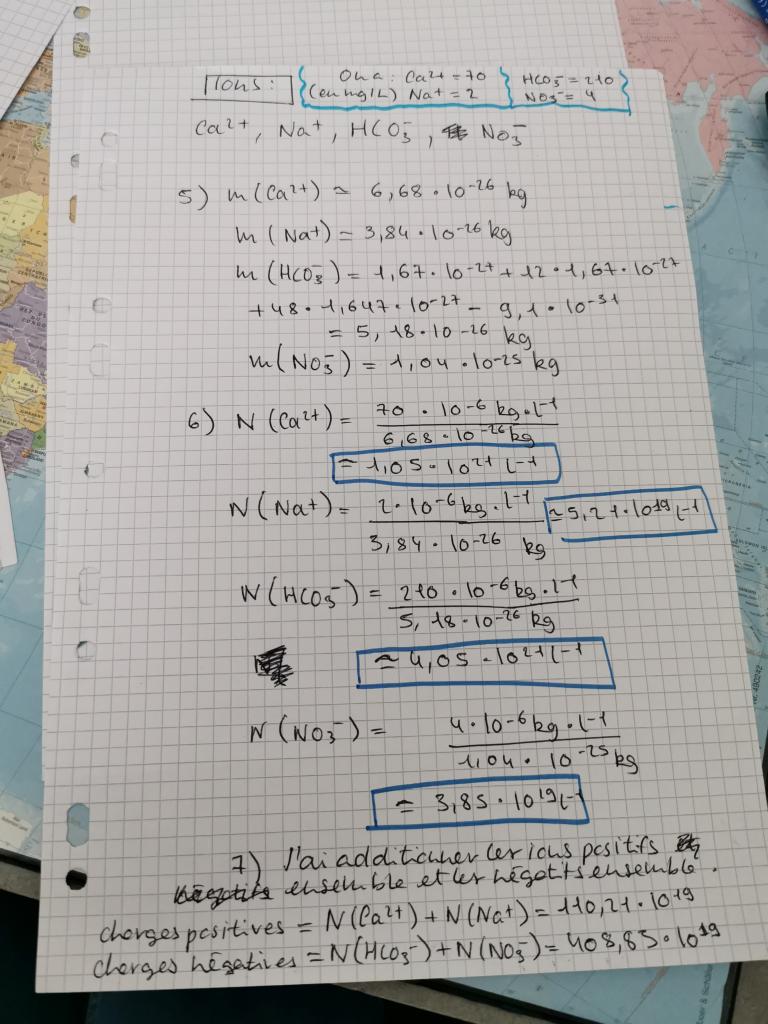 Ions :
On a : Ca²⁺ = 70
(en mg/L) Na⁺ = 2
HCO₃⁻ = 210
NO₃⁻ = 4
Ca²⁺, Na⁺, HCO₃⁻, NO₃⁻
5) m(Ca²⁺) ≃ 6,68 · 10⁻²⁶ kg
m(Na⁺) = 3,84 · 10⁻²⁶ kg
m(HCO₃⁻) = 1,67 · 10⁻²⁷ + 12 · 1,67 · 10⁻²⁷
+ 48 · 1,647 · 10⁻²⁷ - 9,1 · 10⁻³¹
= 5,18 · 10⁻²⁶ kg
m(NO₃⁻) = 1,04 · 10⁻²⁵ kg
6) N(Ca²⁺) = 70 · 10⁻⁶ kg · l⁻¹
6,68 · 10⁻²⁶ kg
≃ 1,05 · 10²¹ l⁻¹
N(Na⁺) = 2 · 10⁻⁶ kg · l⁻¹ ≃ 5,21 · 10¹⁹ l⁻¹
3,84 · 10⁻²⁶ kg
N(HCO₃⁻) = 210 · 10⁻⁶ kg · l⁻¹
5,18 · 10⁻²⁶ kg
≃ 4,05 · 10²¹ l⁻¹
N(NO₃⁻) = 4 · 10⁻⁶ kg · l⁻¹
1,04 · 10⁻²⁵ kg
≃ 3,85 · 10¹⁹ l⁻¹
7) J'ai additionner les ions positifs
ensemble et les négatifs ensemble.
charges positives = N(Ca²⁺) + N(Na⁺) = 110,21 · 10¹⁹
charges négatives = N(HCO₃⁻) + N(NO₃⁻) = 408,85 · 10¹⁹